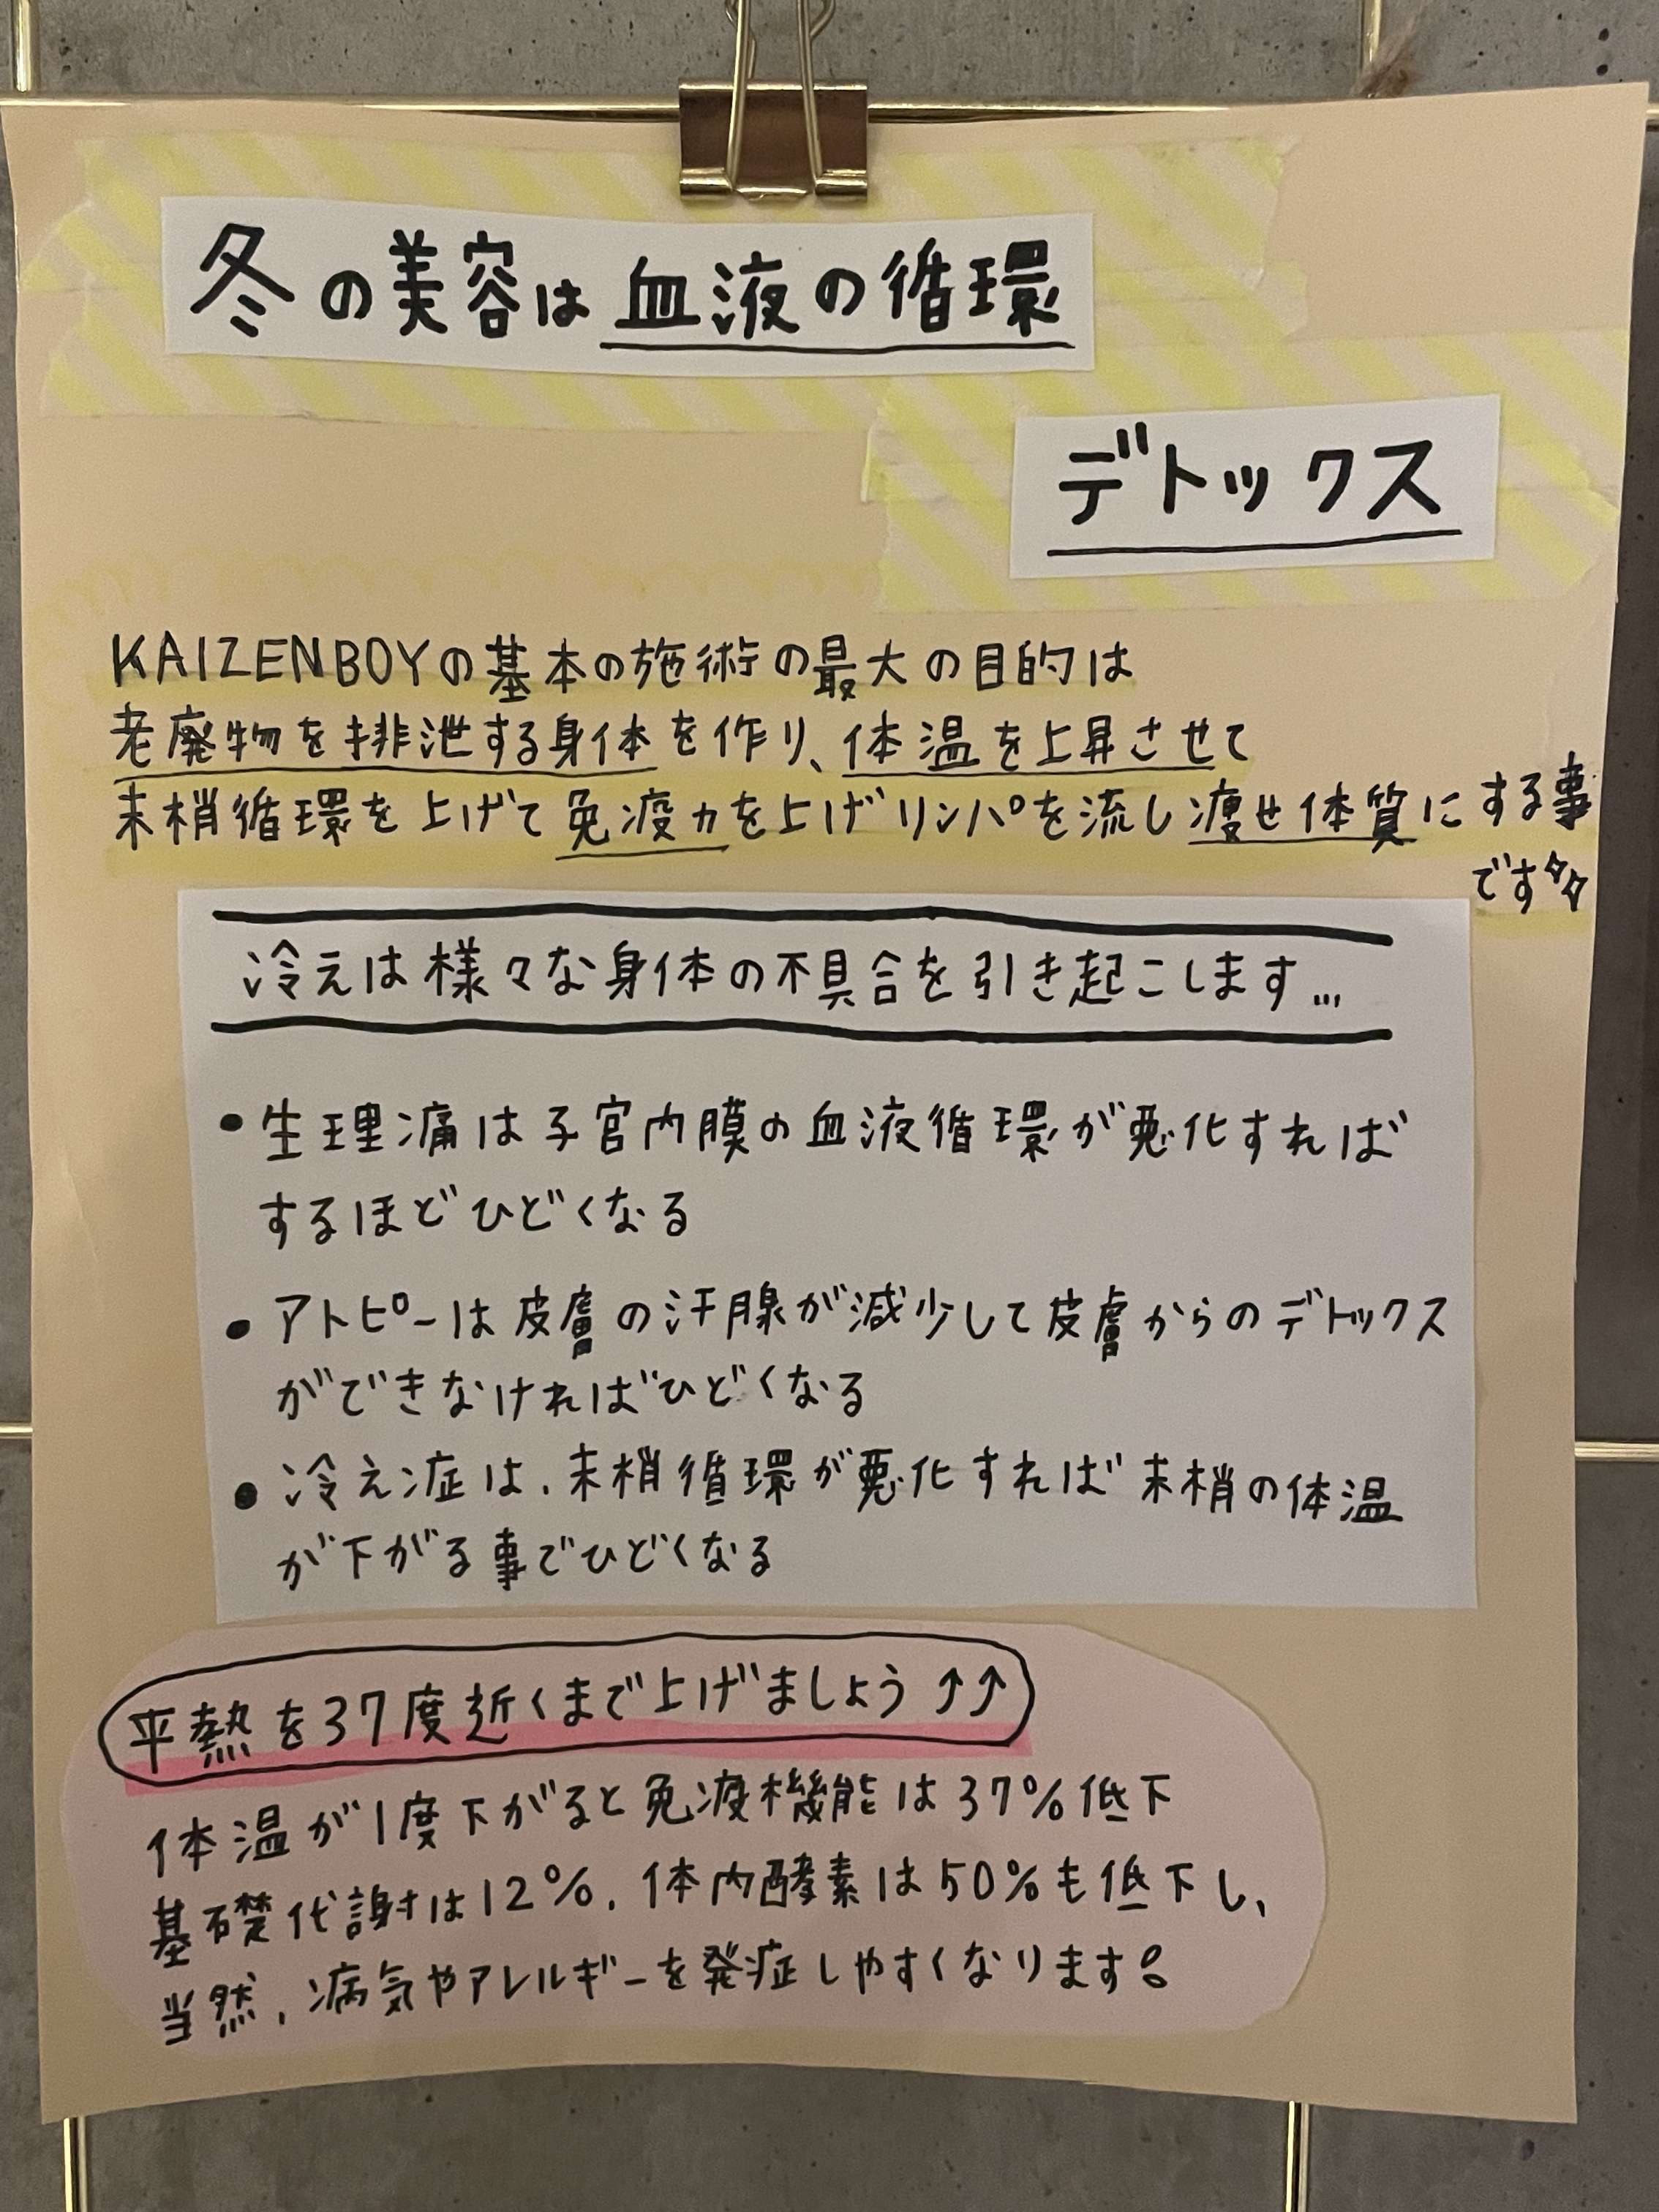 冬の美容は血液の循環
デトックス
KAIZENBOYの基本の施術の最大の目的は
老廃物を排泄する身体を作り、体温を上昇させて
末梢循環を上げて免疫力を上げリンパを流し痩せ体質にする事
です✨
冷えは様々な身体の不具合を引き起こします...
• 生理痛は子宮内膜の血液循環が悪化すれば
するほどひどくなる
• アトピーは皮膚の汗腺が減少して皮膚からのデトックス
ができなければひどくなる
• 冷え症は、末梢循環が悪化すれば末梢の体温
が下がる事でひどくなる
平熱を37度近くまで上げましょう↑↑
体温が1度下がると免疫機能は37%低下
基礎代謝は12%、体内酵素は50%も低下し、
当然、病気やアレルギーを発症しやすくなります!